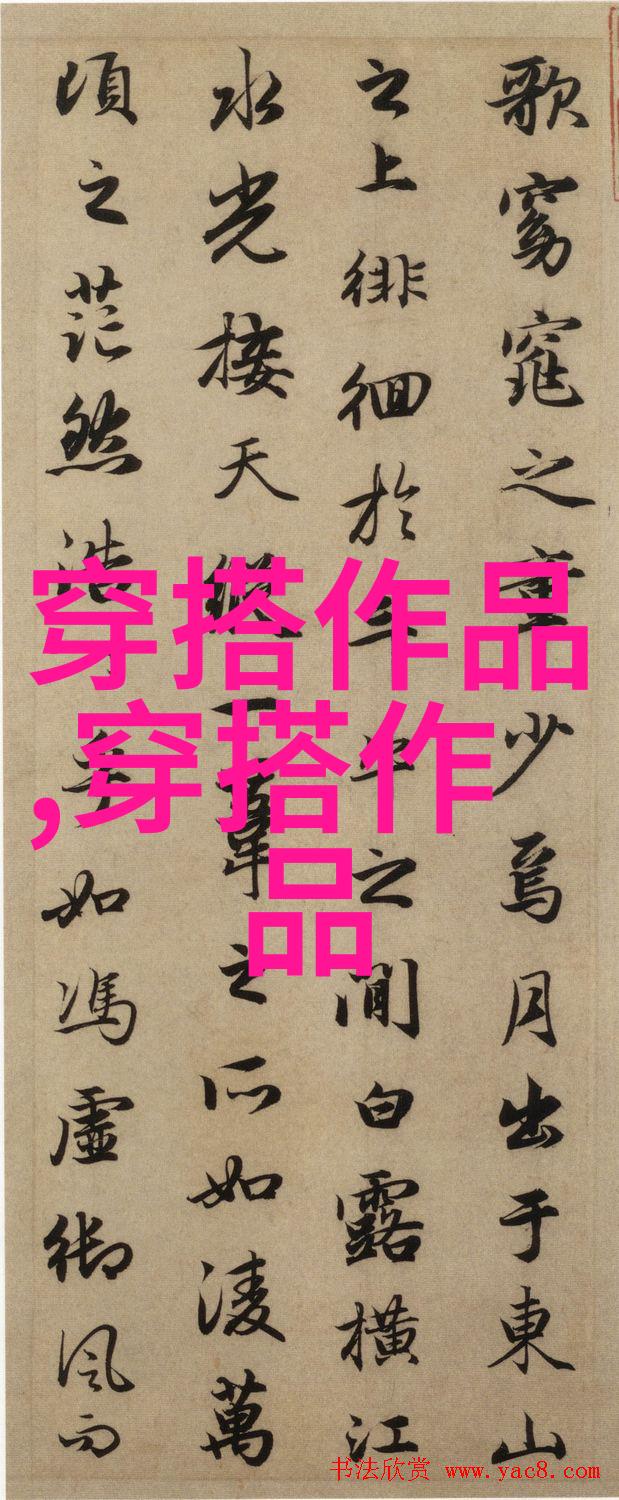 歌窈窕之章少焉月出于東山
之上徘徊於之間白露橫江
水光接天縱一葦之所如淩萬
頃之茫然浩乎如馮虛御風而
穿搭作品
,穿搭作
品
书法欣赏 www.yac8.com